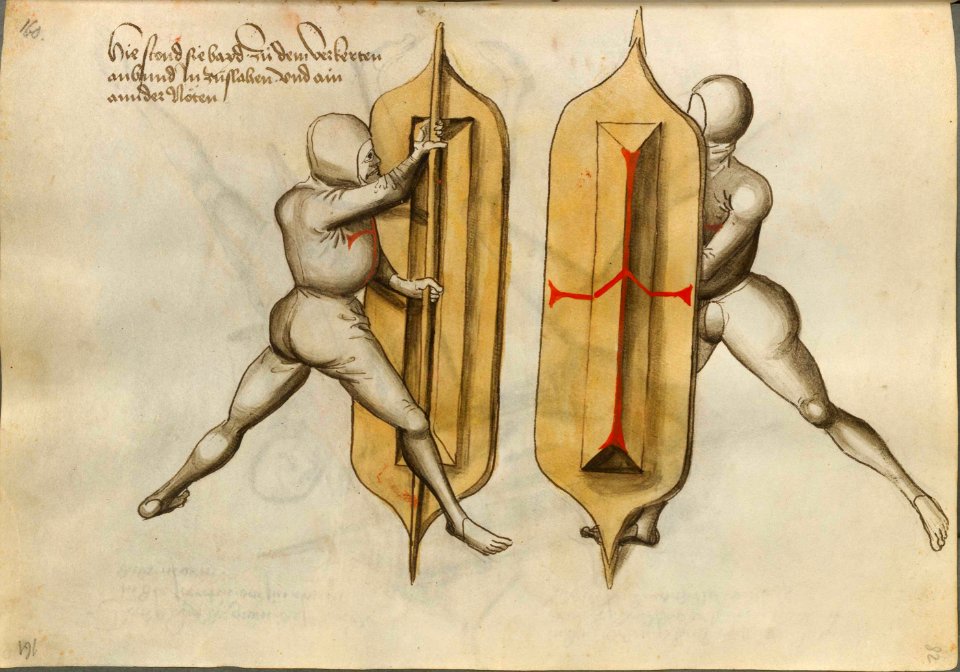 160.
Hie stond sie baid zů dem verkerten
anbind In zůslahen und ain
annder Nöten
161
82